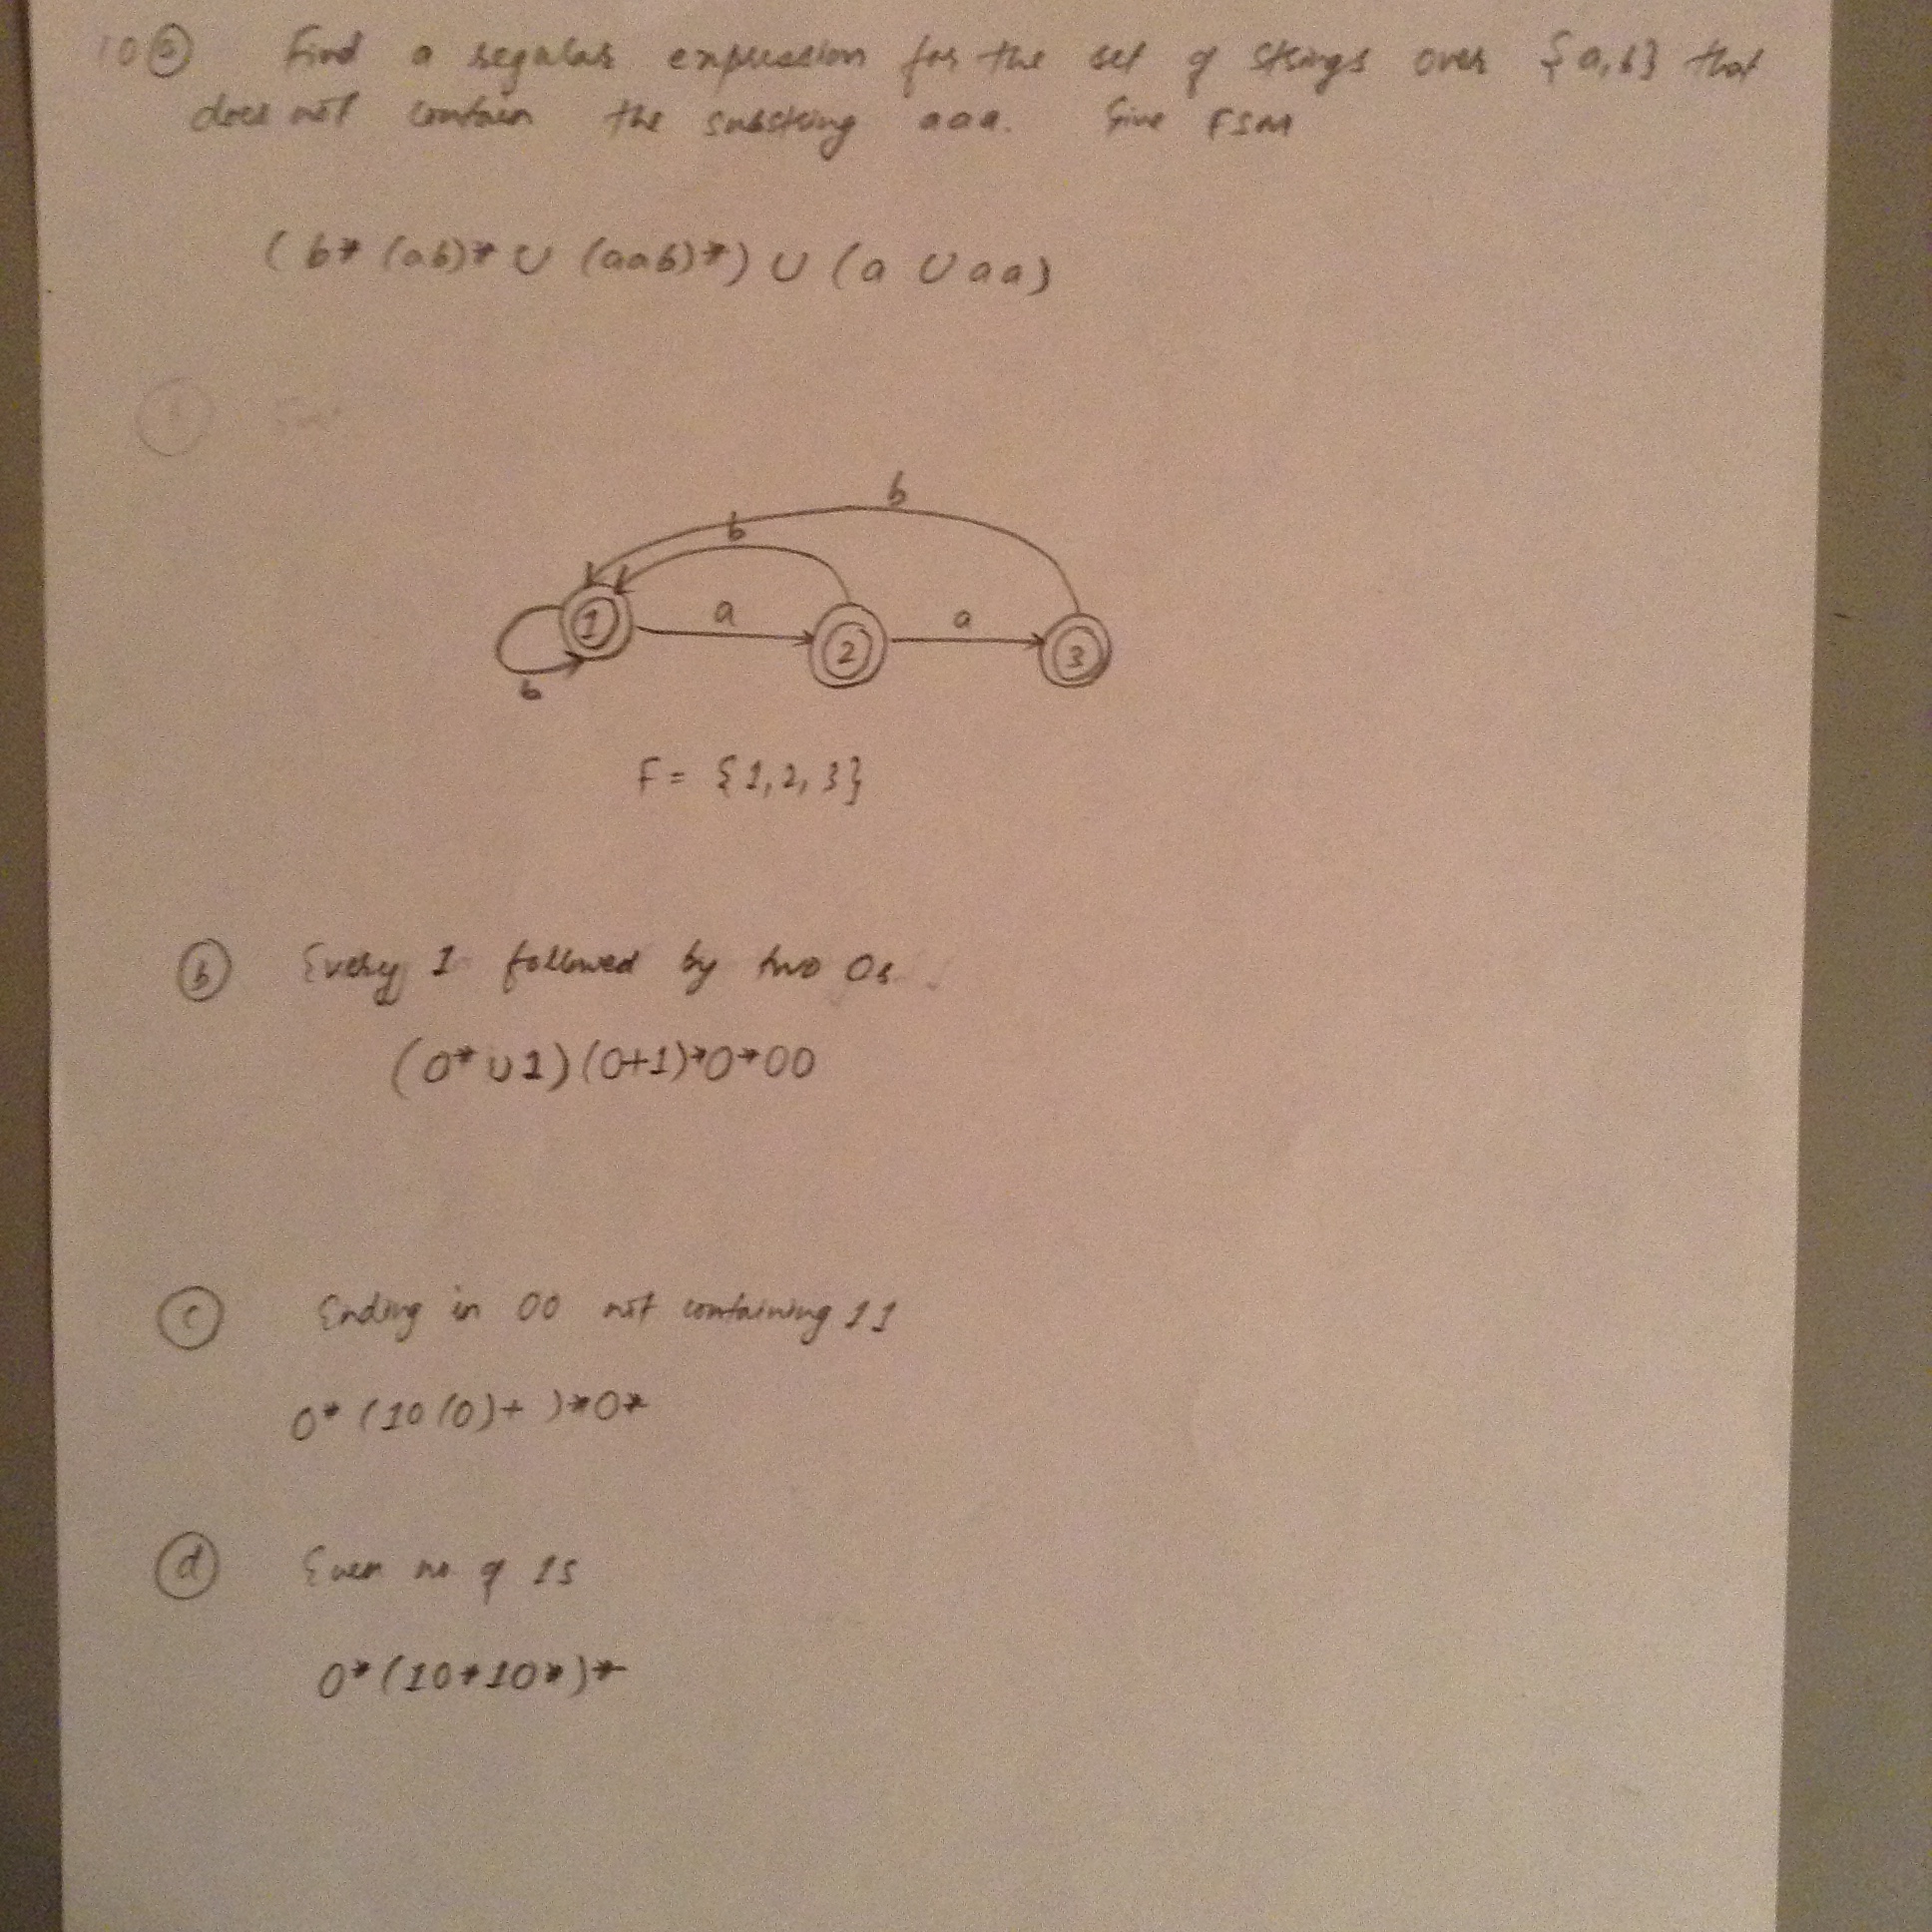 10 a Find a regular expression for the set of strings over {a,b} that
does not contain the substring aaa. Give FSM
( b* (ab)* ∪ (aab)*) ∪ (a ∪ aa)
b
b
a
a
1
2
3
b
F = {1,2,3}
b Every 1 followed by two 0s
(0* ∪ 1) (0+1)*0*00
c Ending in 00 not containing 11
0* (10 (0)+ )*0*
d Even no of 1s
0*(10*10*)*